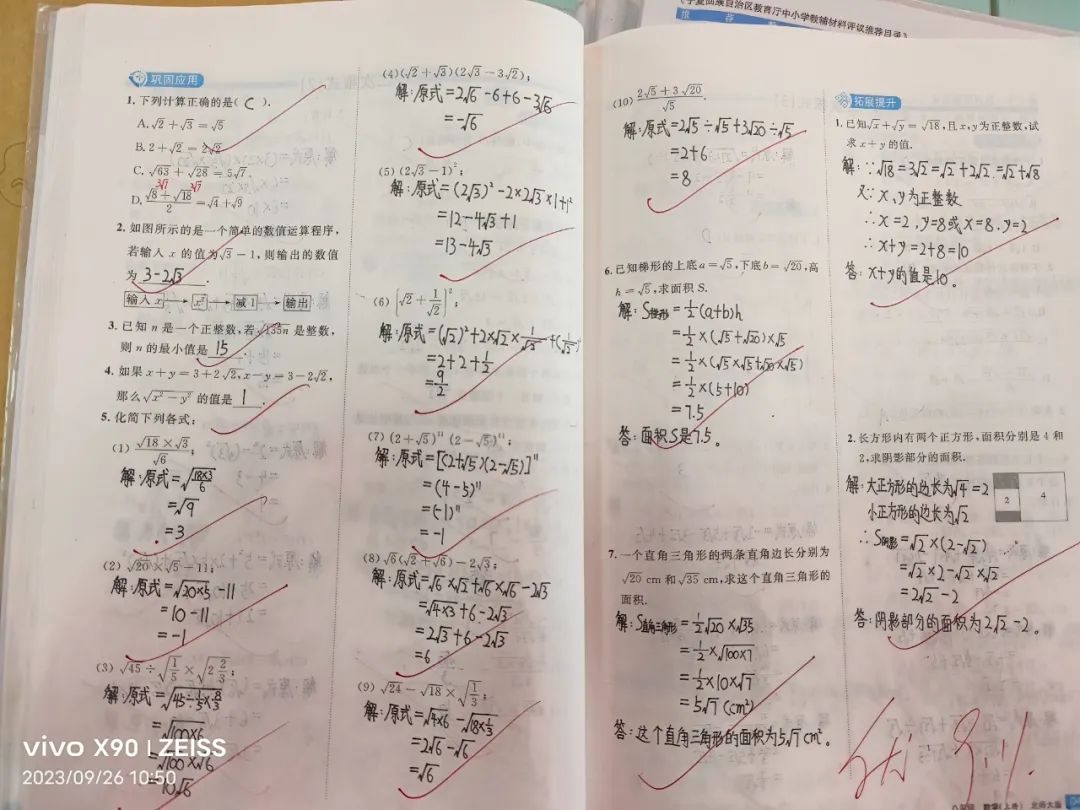 宁夏回族自治区教育厅中小学教辅材料评议推荐目录》
推 荐
巩固应用
1.下列计算正确的是( C ).
A.√2+√3=√5
B.2+√2=2√2
C.√63+√28=5√7
3√7 2√7
D.(√8+√18)/2=√4+√9
2.如图所示的是一个简单的数值运算程序,
若输入 x 的值为√3-1,则输出的数值
为 3-2√3 .
输入x → x² → 减1 → 输出
3.已知 n 是一个正整数,若√135n 是整数,
则 n 的最小值是 15 .
4.如果 x+y=3+2√2,x-y=3-2√2,
那么√(x²-y²) 的值是 1 .
5.化简下列各式:
(1) (√18×√3)/√6;
解:原式=√(18×3/6)
=√9
=3
(2) √20×√5-11;
解:原式=√(20×5)-11
=10-11
=-1
(3) √45÷√(1/5)×√(2 2/3);
解:原式=√(45÷1/5×8/3)
=√(100×6)
=√100×√6
=10√6
(4)(√2+√3)(2√3-3√2);
解:原式=2√6-6+6-3√6
=-√6
(5) (2√3-1)²;
解:原式=(2√3)²-2×2√3×1+1²
=12-4√3+1
=13-4√3
(6) (√2+1/√2)²;
解:原式=(√2)²+2×√2×1/√2+(1/√2)²
=2+2+1/2
=9/2
(7) (2+√5)¹¹(2-√5)¹¹;
解:原式=[(2+√5)(2-√5)]¹¹
=(4-5)¹¹
=(-1)¹¹
=-1
(8) √6(√2+√6)-2√3;
解:原式=√6×√2+√6×√6-2√3
=√(4×3)+6-2√3
=2√3+6-2√3
=6
(9) √24-√18×√(1/3);
解:原式=√(4×6)-√(18×1/3)
=2√6-√6
=√6
(10) (2√5+3√20)/√5.
解:原式=2√5÷√5+3√20÷√5
=2+6
=8
6.已知梯形的上底 a=√5,下底 b=√20,高
h=√5,求面积 S.
解:S梯形=1/2(a+b)h
=1/2×(√5+√20)×√5
=1/2×(√5×√5+√20×√5)
=1/2×(5+10)
=7.5
答:面积S是7.5。
7.一个直角三角形的两条直角边长分别为
√20 cm 和√35 cm,求这个直角三角形的
面积.
解:S直角三角形=1/2√20×√35
=1/2×√(100×7)
=1/2×10×√7
=5√7(cm²)
答:这个直角三角形的面积为5√7cm²。
拓展提升
1.已知√x+√y=√18,且 x,y 为正整数,试
求 x+y 的值.
解:∵√18=3√2=√2+2√2=√2+√8
又∵x、y为正整数
∴x=2,y=8或x=8.y=2
∴x+y=2+8=10
答:x+y的值是10。
2.长方形内有两个正方形,面积分别是 4 和
2,求阴影部分的面积.
2 4
解:大正方形的边长为√4=2
小正方形的边长为√2
∴S阴影=√2×(2-√2)
=√2×2-√2×√2
=2√2-2
答:阴影部分的面积为2√2-2。
vivo X90 | ZEISS
2023/09/26 10:50